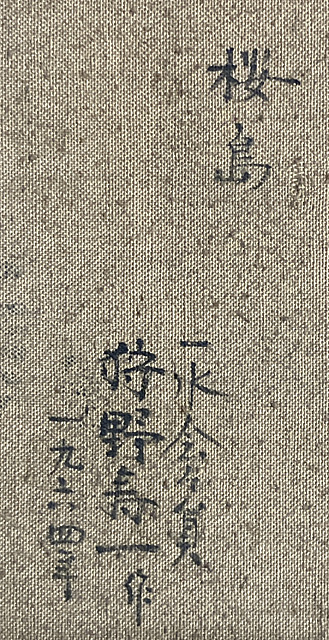 桜島
一水会会員
狩野壽一作
一九六四年